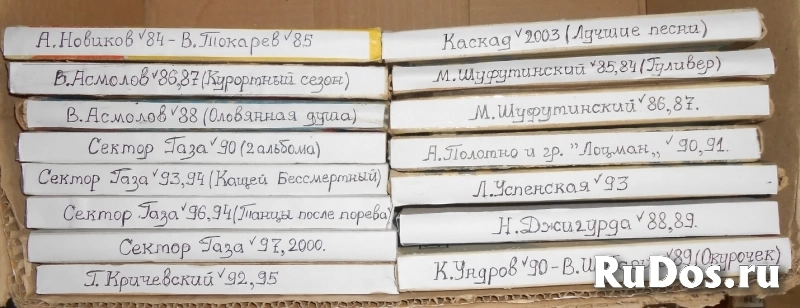 А.Новиков √84 - В.Токарев √85
В.Асмолов √86,87(Курортный сезон)
В.Асмолов √88 (Оловянная душа)
Сектор Газа √90(2альбома)
Сектор Газа √93,94(Кащей Бессмертный)
Сектор Газа √96,94(Танцы после порева)
Сектор Газа √97,2000.
Г.Кричевский √92,95
Каскад √2003(Лучшие песни)
М.Шуфутинский √85,84(Гуливер)
М.Шуфутинский √86,87.
А.Полотно и гр. "Лоцман„ √90,91.
Л.Успенская √93
Н.Джигурда √88,89.
К.Ундров √90-В. √89(Окурочек)
RuDos.ru